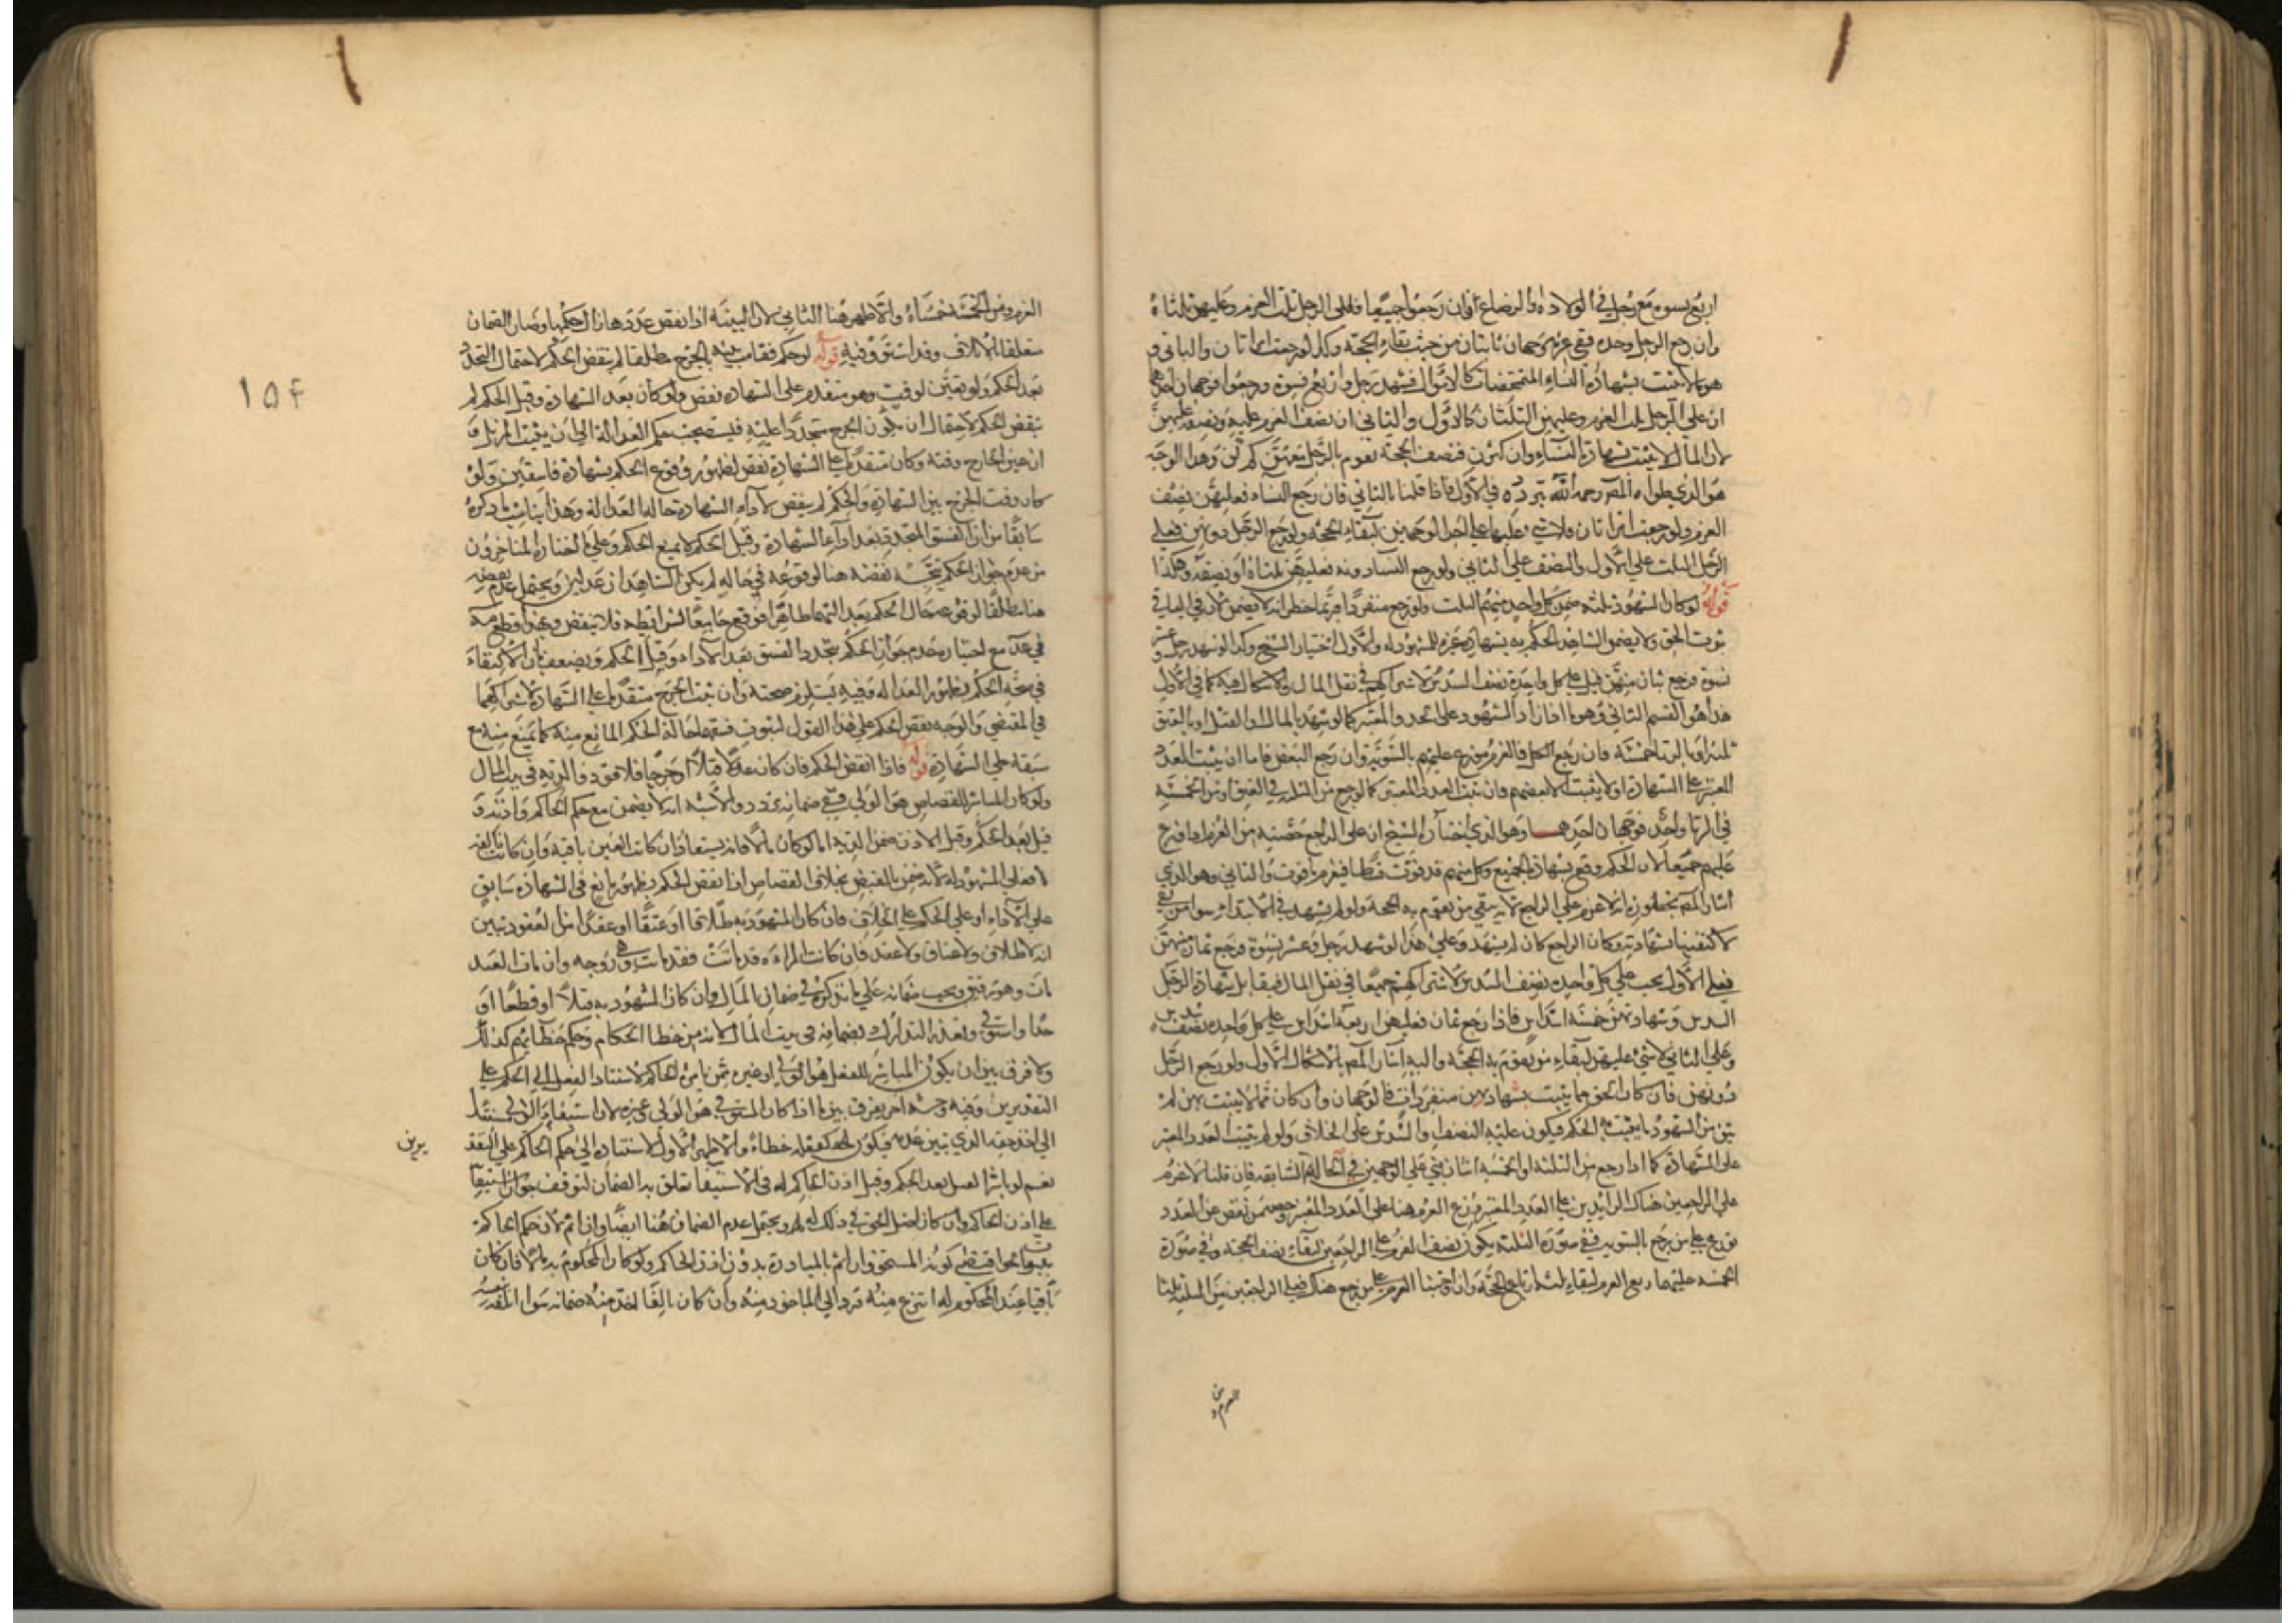 اربع نسوة مع رجل في الولادة والرضاع فان رجعوا جميعا فعلى الرجل ثلث الغرم وعليهن ثلثاه
وان رجع الرجل وحده ففي غرمه وجهان ثابتان من حيث بقاء الحجة وكذا لو رجعت امراتان والباقي
هو ما لا يثبت بشهادة النساء المتمحضات كالاموال فشهد رجل واربع نسوة ورجعوا فوجهان احدهما
ان على الرجل ثلث الغرم وعليهن الثلثان كالاول والثاني ان نصف الغرم عليه ونصفه عليهن
لان المال لا يثبت بشهادة النساء وان كثرن فنصف الحجة تقوم بالرجل معهن كم كن وهذا الوجه
هو الذي المصر رحمه الله في الاول فاذا قلنا بالثاني فان رجع النساء فعليهن نصف
الغرم ولو رجعت امراتان فلا شيء عليهما على احد الوجهين لبقاء الحجة ولو رجع الرجل دونهن فعلى
الرجل الثلث على الاول والنصف على الثاني ولو رجع النساء دونه فعليهن ثلثاه او نصفه وهكذا
قوله لو كان الشهود ثلثة ضمن كل واحد منهم الثلث ولو رجع منفردا وربما خطر انه لا يضمن لان في الباقي
ثبوت الحق ولا يضمن الشاهد ما يحكم به بشهادة غيره للمشهود له والاول اختيار الشيخ وكذا لو شهد رجل وعشر
نسوة فرجع ثمان منهن قيل على كل واحدة نصف السدس لاشتراكهم في نقل المال والاشكال فيه كما في الاول
هذا هو القسم الثاني وهو ما اذا زاد الشهود على الحد المعتبر كما لو شهد بالمال او القتل او بالعتق
ثلثة او بالزنا خمسة فان رجع الكل فالغرم موزع عليهم بالسوية وان رجع البعض فاما ان يثبت العدد
المعتبر على الشهادة او لا يثبت الا بعضهم فان ثبت العدد المعتبر كما لو رجع من الثلثة في العتق او من الخمسة
في الزنا واحد فوجهان احدهما وهو الذي اختاره الشيخ ان على الراجع حصته من الغرم اذا وزع
عليهم جميعا لان الحكم وقع بشهادة الجميع وكل منهم قد فوت قسطا فيغرم ما فوت والثاني وهو الذي
اشار المصر بخطور انه لا غرم على الراجع لانه بقي من تقوم به الحجة ولو لم يشهد في الابتداء سوا من بقي
لاكتفينا بشهادته وكان الراجع كان لم يشهد وعلى هذا لو شهد رجل وعشر نسوة فرجع ثمان منهن
فعلى الاول يجب على كل واحدة نصف السدس لاشتراكهم جميعا في نقل المال فيقابل شهادة الرجل
السدس وشهادتهن خمسة اسداس فاذا رجع ثمان فعليهن اربعة اسداس على كل واحدة نصف سدس
وعلى الثاني لا شيء عليهن لبقاء من تقوم به الحجة واليه اشار المصر بالاشكال الاول ولو رجع الرجل
دونهن فان كان الحق مما يثبت بشهادتهن منفردات فالوجهان وان كان مما لا يثبت بهن لم
يبق من الشهود ما يثبت به الحكم فيكون عليه النصف او السدس على الخلاف ولو لم يثبت العدد المعتبر
على الشهادة كما اذا رجع من الثلثة او الخمسة اثنان بني على الوجهين في الحالة السابقة فان قلنا لا غرم
على الراجعين هناك الزايدين على العدد المعتبر وزع الغرم هنا على العدد المعتبر وحصة من نقص من العدد
توزع على من رجع بالسوية ففي صورة الثلثة يكون نصف الغرم على الراجعين لبقاء نصف الحجة وفي صورة
الخمسة عليهما ربع الغرم لبقاء ثلثة ارباع الحجة وان اوجبنا الغرم على من رجع هناك فعلى الراجعين من الثلثة ثلثا
الغرم و من
الغرم ومن الخمسة خمساه والاظهر هنا الثاني لان البينة اذا نقص عددها زال حكمها وصار الضمان
متعلقا بالاتلاف وقد استووا فيه قوله لو حكم فقامت بينة بالجرح مطلقا لم ينقض الحكم لاحتمال التجدد
بعد الحكم ولو تعين الوقت وهو متقدم على الشهادة نقض ولو كان بعد الشهادة وقبل الحكم لم
ينقض الحكم لاحتمال ان يكون الجرح متجددا عليه فيستصحب حكم العدالة الى ان يثبت المزيل و
ان عين الجارح وقته وكان متقدما على الشهادة نقض لظهور وقوع الحكم بشهادة فاسقين ولو
كان وقت الجرح بين الشهادة والحكم لم ينقض لاداء الشهادة حالة العدالة وهذا يناسب ما ذكره
سابقا من ان الفسق المتجدد بعد اداء الشهادة وقبل الحكم لا يمنع الحكم وعلى ما اختاره المتاخرون
من عدم جواز الحكم يتجه نقضه هنا لوقوعه في حالة لم يكن الشاهدان عدلين ويحتمل عدم نقضه
هنا مطلقا لوقوعه حال الحكم بعدالتهما ظاهرا فوقع جامعا لشرائطه فلا ينقض وبهذا قطع
في عد مع اختياره عدم جواز الحكم بتجدد الفسق بعد الاداء وقبل الحكم ويضعف بان الاكتفاء
في صحة الحكم بظهور العدالة وفيه يستلزم صحته وان ثبت الجرح متقدما على الشهادة لاشتراكهما
في المقتضي والوجه نقض الحكم على هذا القول لثبوت فسقهما حالة الحكم المانع منه كما يمنع منه مع
سبقه على الشهادة قوله فاذا انتقض الحكم فان كان قتلا او جرحا فلا قود والدية في بيت المال
ولو كان المباشر للقصاص هو الولي ففي ضمانه تردد والاشبه انه لا يضمن مع حكم الحاكم واذنه و
قيل بعد الحكم وقبل الاذن ضمن الدية اما لو كان مالا فانه يستعاد ان كانت العين باقية وان كانت تالفة
فعلى المشهود له لانه ضمن بالقبض بخلاف القصاص اذا نقض الحكم بظهور مانع في الشهادة سابق
على الاداء او على الحكم على الخلاف فان كان المشهود به طلاقا او عتقا او عقدا من العقود تبين
انه لا طلاق ولا عتاق ولا عقد فان كانت المراة قد ماتت فقد ماتت وهي زوجة وان مات العبد
مات وهو رقيق ويجب ضمانه على ما نذكره في ضمان المال وان كان المشهود به قتلا او قطعا او
حدا واستوفي وتعذر التدارك فضمانه في بيت المال لانه من خطا الحكام وحكم خطائهم كذلك
ولا فرق بين ان يكون المباشر للفعل هو الولي او غيره ممن يامره الحاكم لاستناد الفعل الى الحكم على
التقديرين وفيه وجه اخر يفرق بين ما اذا كان المستوفي هو الولي وغيره لان استيفاء الولي مستند
الى اخذ حقه الذي تبين عدمه فيكون كفعله خطاء والاظهر الاول لاستناده الى حكم الحاكم على التقد
يرين
نعم لو باشر القتل بعد الحكم وقبل اذن الحاكم له في الاستيفاء تعلق به الضمان لتوقف جواز استيفائه
على اذن الحاكم وان كان اصل الحق في ذلك له ويحتمل عدم الضمان هنا ايضا وان اثم لان حكم الحاكم
كونه المستحق وان اثم بالمبادرة بدون اذن الحاكم ولو كان المحكوم به مالا فان كان
باقيا عند المحكوم له انتزع منه ورد الى الماخوذ منه وان كان تالفا اخذ منه ضمانه سوا
١٥٤